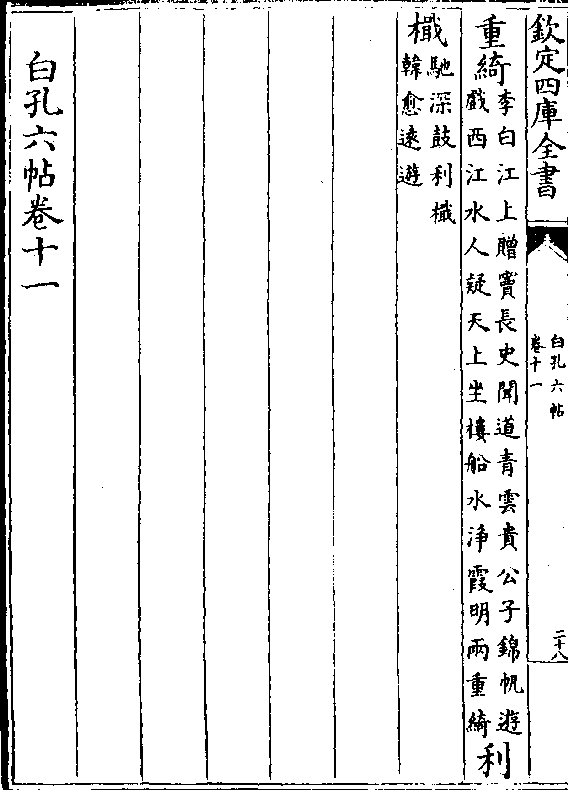 欽定四庫全書
白孔六帖
卷十一
二十八
重綺
李白江上贈竇長史聞道青雲貴公子錦帆遊
戲西江水人疑天上坐樓船水浄霞明兩重綺
利
檝
馳深鼓利檝
韓愈遠遊
白孔六帖卷十一